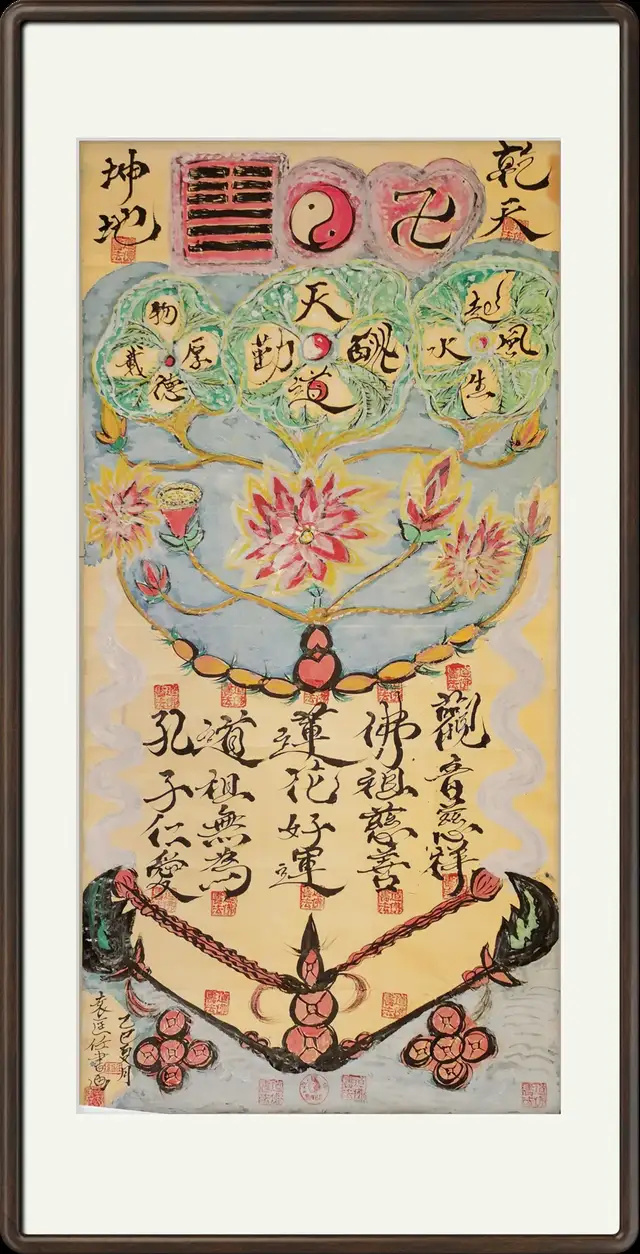 乾天
坤地
天道酬勤
厚德載物
風生水起
觀音慈祥
佛祖慈善
蓮花好運
道祖無為
孔子仁愛
乙巳
月